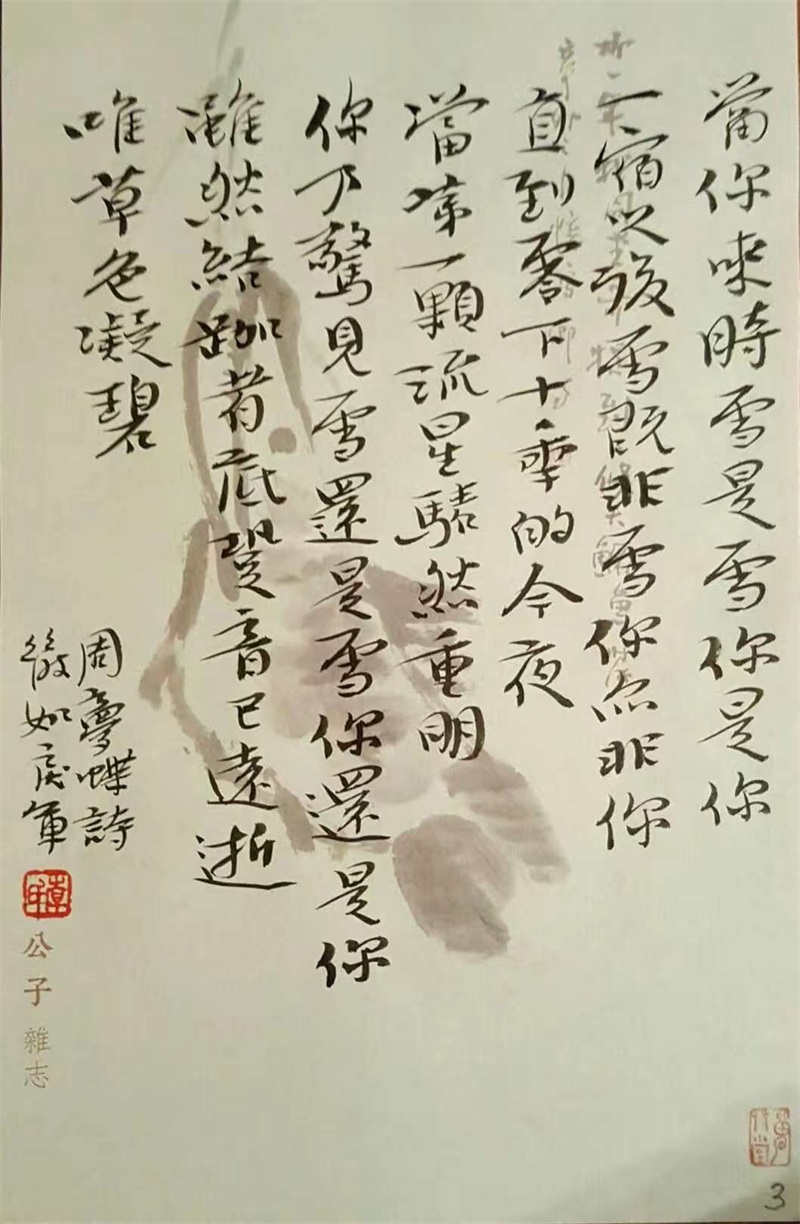 當你來時雪是雪你是你
一宿以後雪既非雪你亦非你
直到零下十年的今夜
當第一顆流星騞然重明
你乃驚見雪還是雪你還是你
雖然結跏者底跫音已遠逝
唯草色凝碧
周夢蝶詩
公子雜志
3